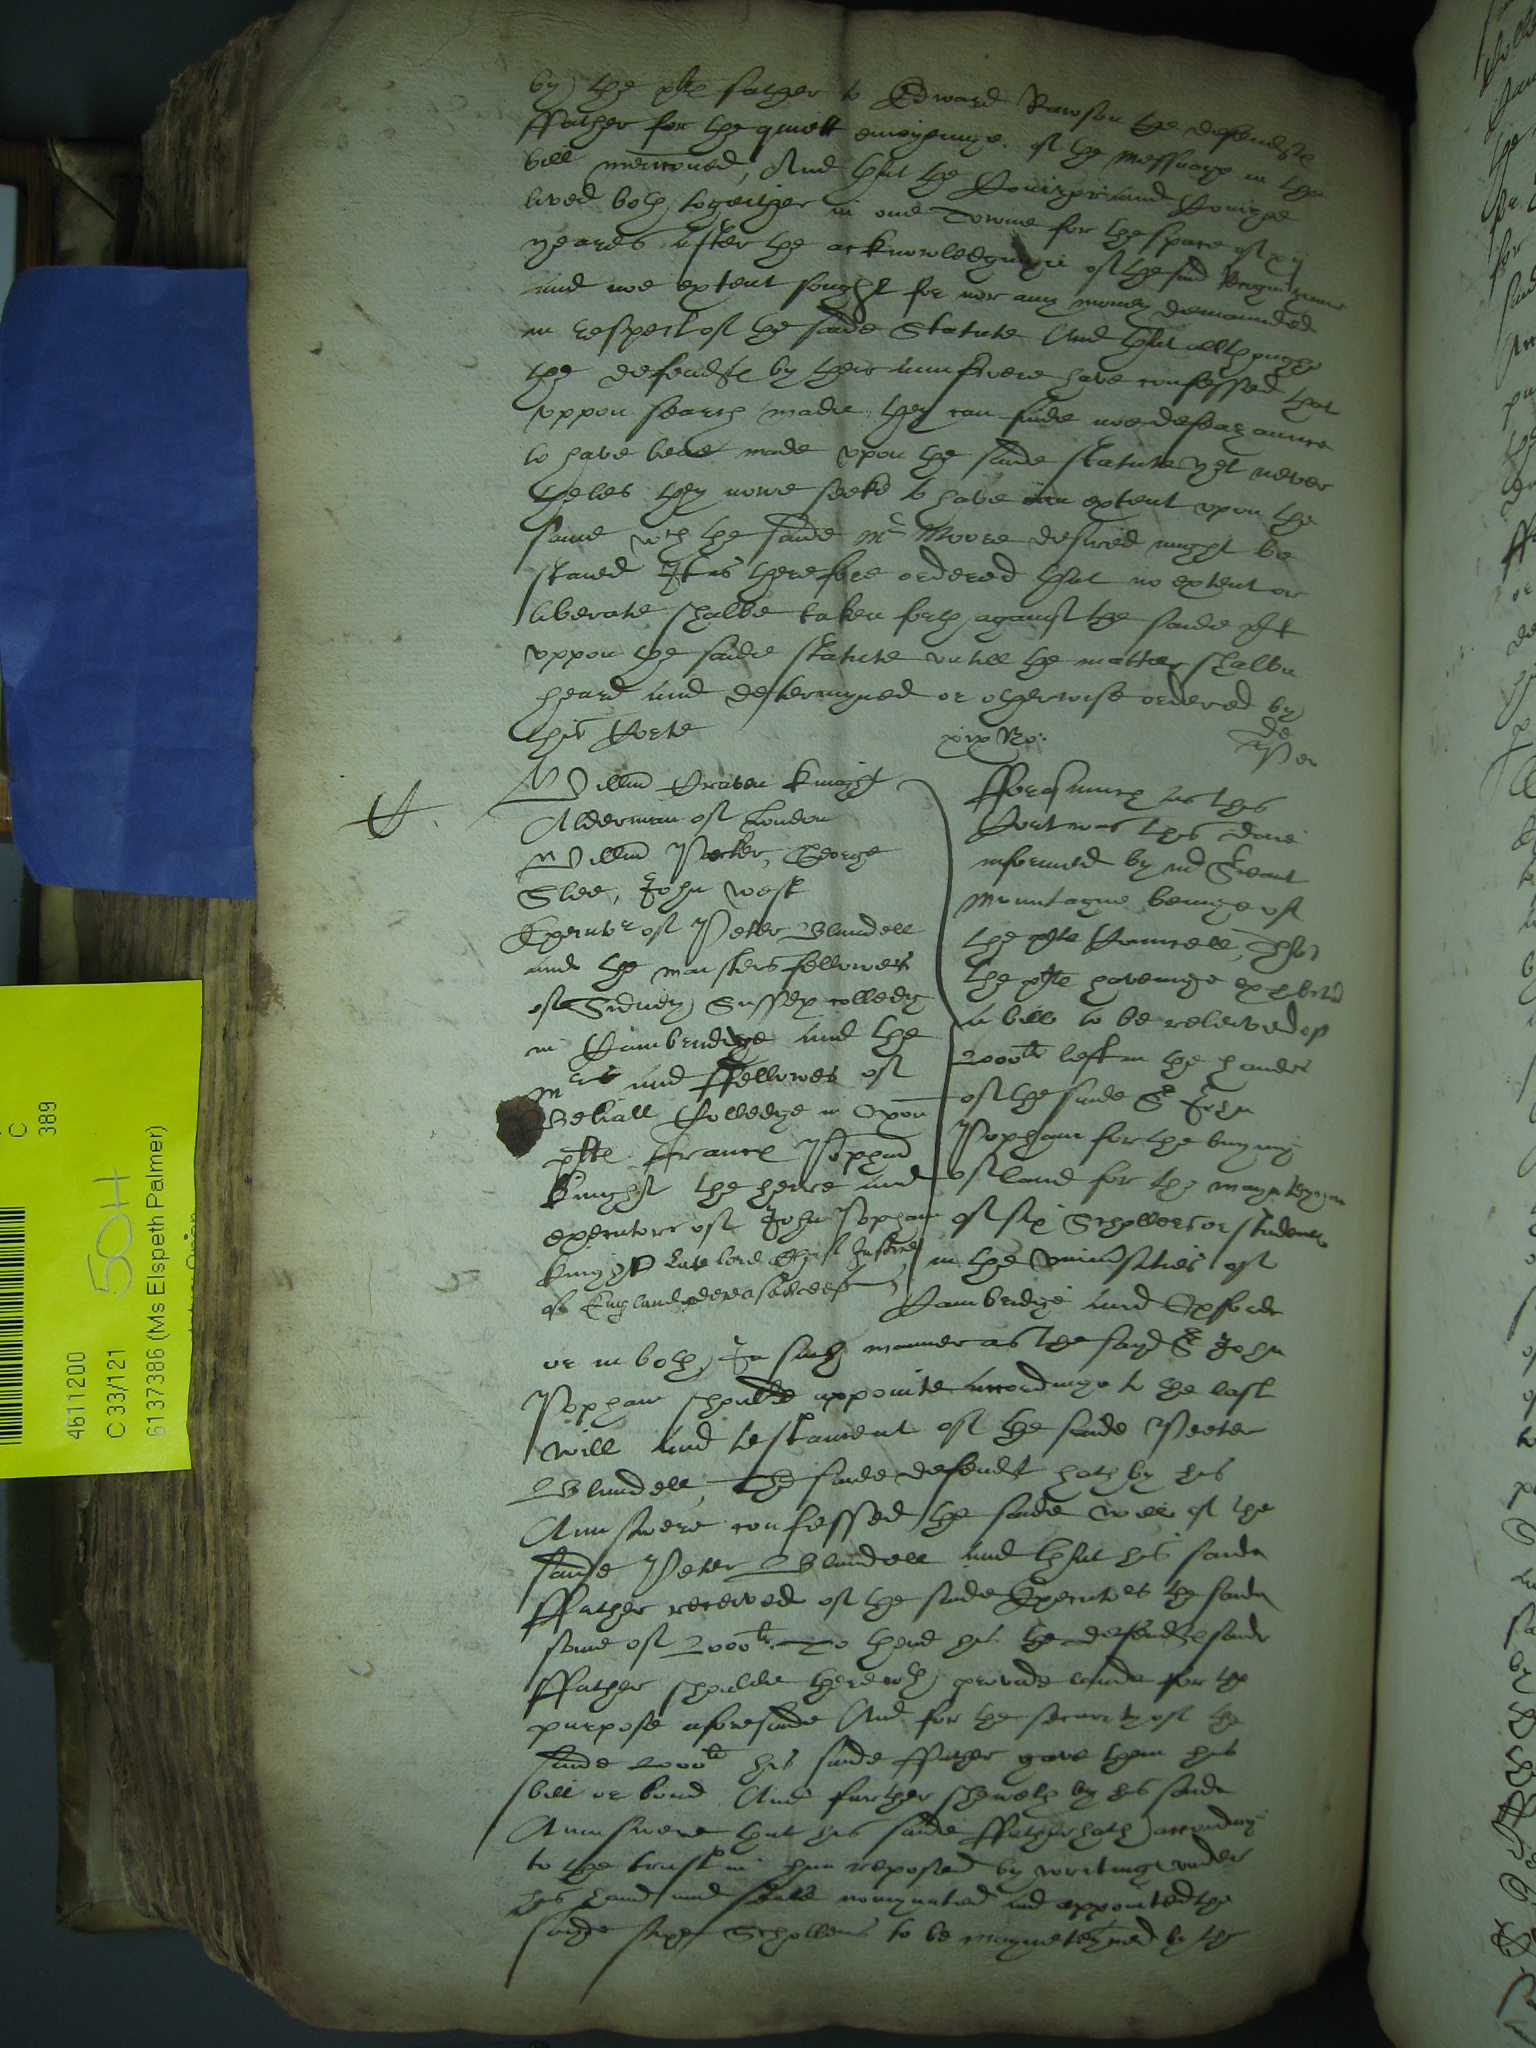 by the plts father to Edward Rawson the defendts
ffather for the quiett enioyeinge of the messuage in the
bill mencioned, And that the Conizor and Conizee
lived both togeither in one Towne for the space of xij
yeares after the acknowledginge of the said Recognizance
and noe extent sought for nor any money demaunded
in respect of the saide Statute And that allthoughe
the defendts by their aunswere have confessed that
uppon search made they can finde noe defeazaunce
to have beene made upon the saide statute yet never
theles they nowe seeke to have an extent upon the
same wch the saide Mr Moore desired might be
staied It is therefore ordered that no extent or
liberate shalbe taken forth against the saide plt
uppon the saide statute untill the matter shalbe
heard and determyned or otherwise ordered by
this Corte
Willm Craven knight
Alderman of London
Willm Parker, George
Slee, John West
Executrs of Peter Blundell
and the masters fellowes
of Sidney Sussex colledg
in Cambridge and the
Mrs and ffellowes of
Beliall Colledge in Oxon
plts Fraunc Popham
knight the heire and
executor of John Popham
knight late lord Chief Justice
of England deceased deft
fforasmuch as this
Cort was this daie
informed by mr Sreant
Mountague beinge of
the plts Councell, That
the plts haveinge exhibited
a bill to be releived of
2000li left in the handes
of the saide Sr John
Popham for the buying
of land for the mayntenance
of six Schollers or studentes
in the Universities of
Cambridge and Oxforde
or in both, In such manner as the sayd Sr John
Popham shoulde appointe accordinge to the last
will and testament of the saide Peeter
Blundell, The saide defendt hath by his
Aunswere confessed the saide will of the
saide Peter Blundell and that his saide
ffather received of the saide Executors the saide
some of 2000li To thend his the defendts saide
ffather shoulde therewth provide lande for the
purpose aforesaide And for the security of the
saide 2000li his saide ffather gave them his
bill or bond And further sheweth by his saide
Aunswere that his saide ffather hath accordinge
to the trust in him reposed by writing under
his hand and seale nomynated and appointed the
saide sixe Schollers to be mayneteyned by the
C
389
4611200
50H
C 33/121
6137386 (Ms Elspeth Palmer)